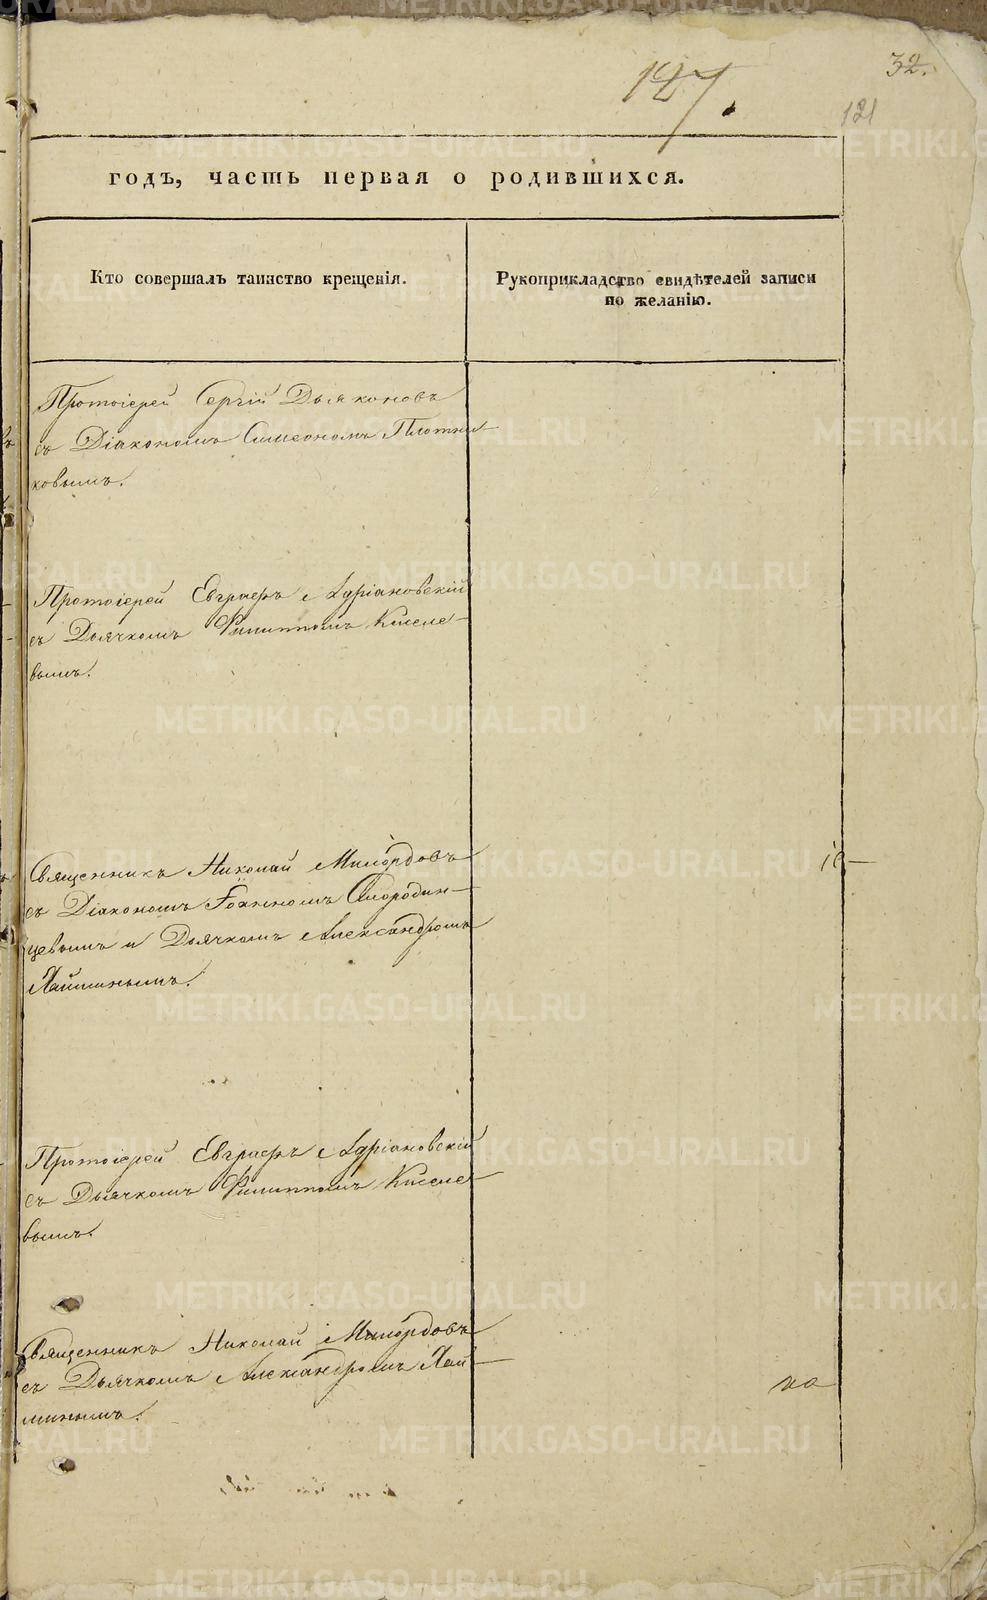 127.
32.
121
годъ, часть первая о родившихся.
Кто совершалъ таинство крещенія.
Рукоприкладство свидѣтелей записи
по желанію.
Протоіерей Сергій Дьяконовъ
съ Діакономъ Симеономъ Плотни-
ковымъ.
Протоіерей Евграфъ Адріановскій
съ Дьячкомъ Филиппомъ Киселе-
вымъ.
Священникъ Николай Милордовъ
съ Діакономъ Іоанномъ Смородин-
цевымъ и Дьячкомъ Александромъ
Хайминымъ.
Протоіерей Евграфъ Адріановскій
съ Дьячкомъ Филиппомъ Киселе-
вымъ.
Священникъ Николай Милордовъ
съ Дьячкомъ Александромъ Хай-
минымъ.
на
METRIKI.GASO-URAL.RU